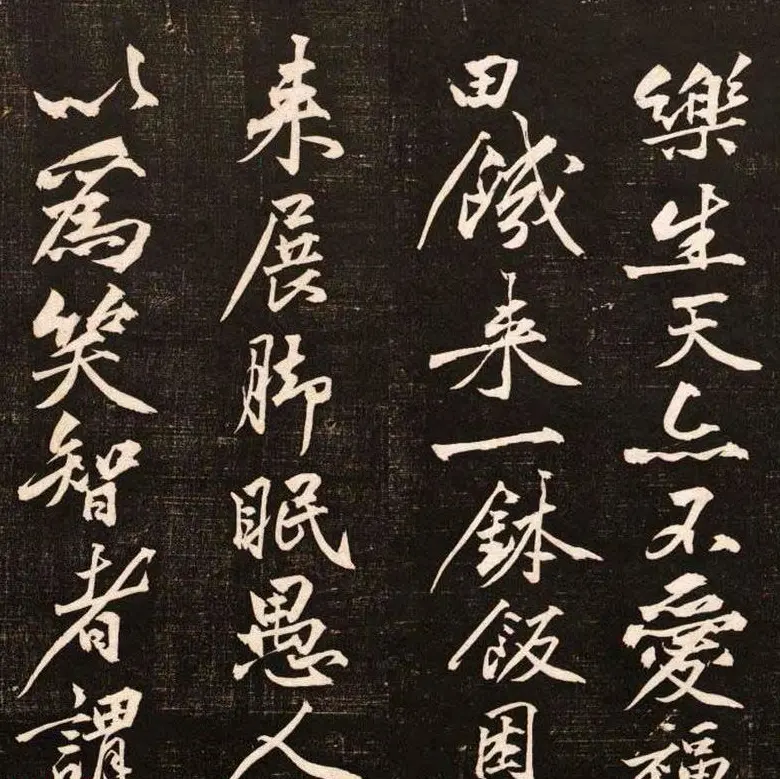 樂生天亦不愛福
田饑来一鉢飯困
来展脚眠愚人
以為笑智者謂